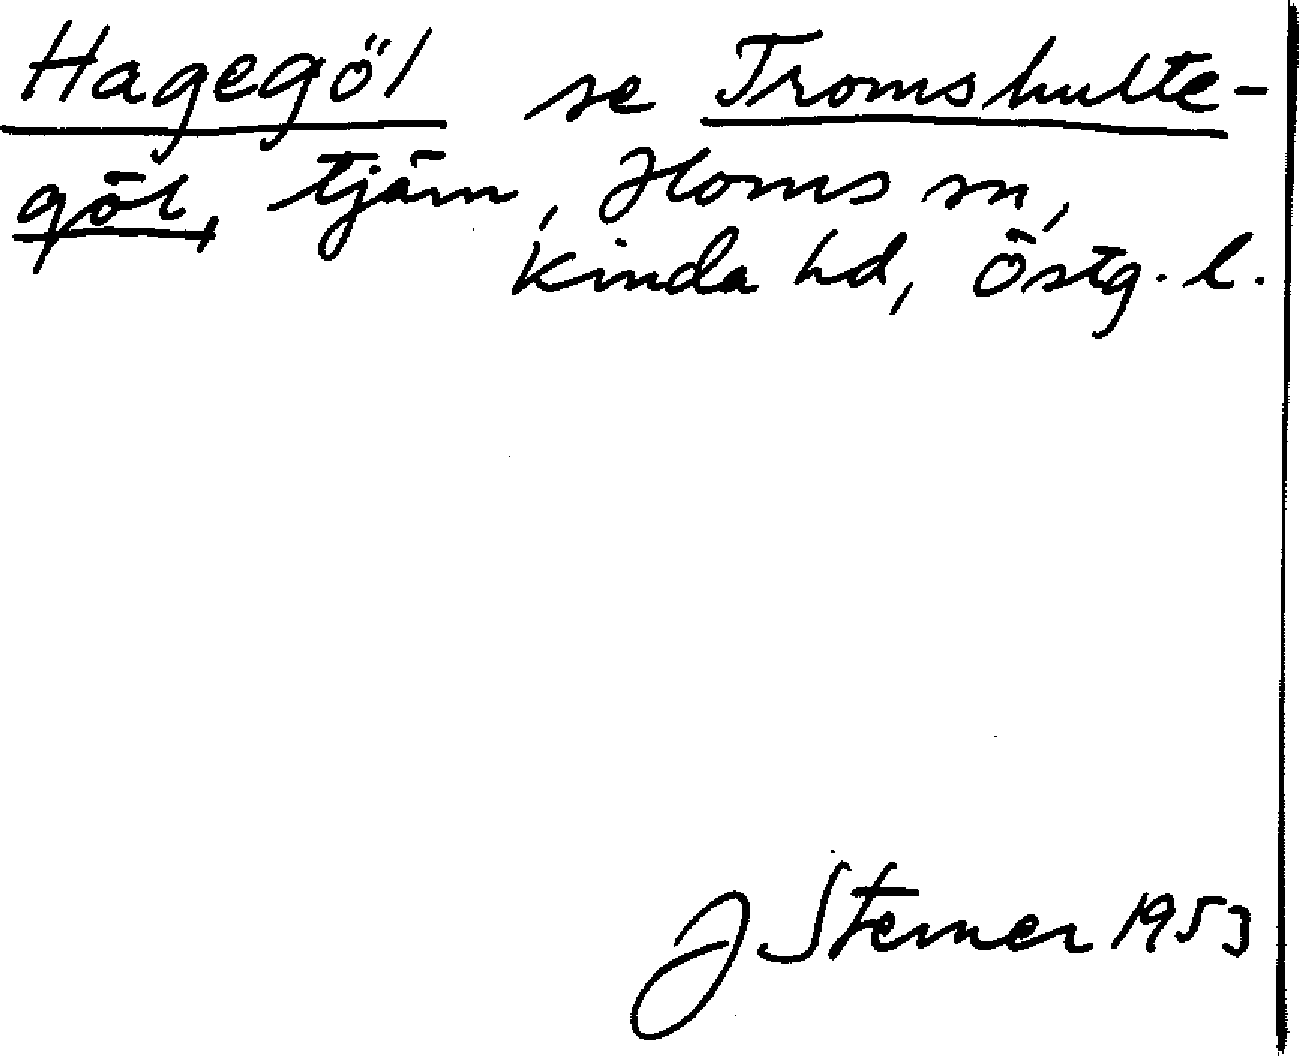 Hagegöl se Tromshulte-
göl, tjärn, Horns sn,
Kinda hd, Östg. l.
J Sterner 1953